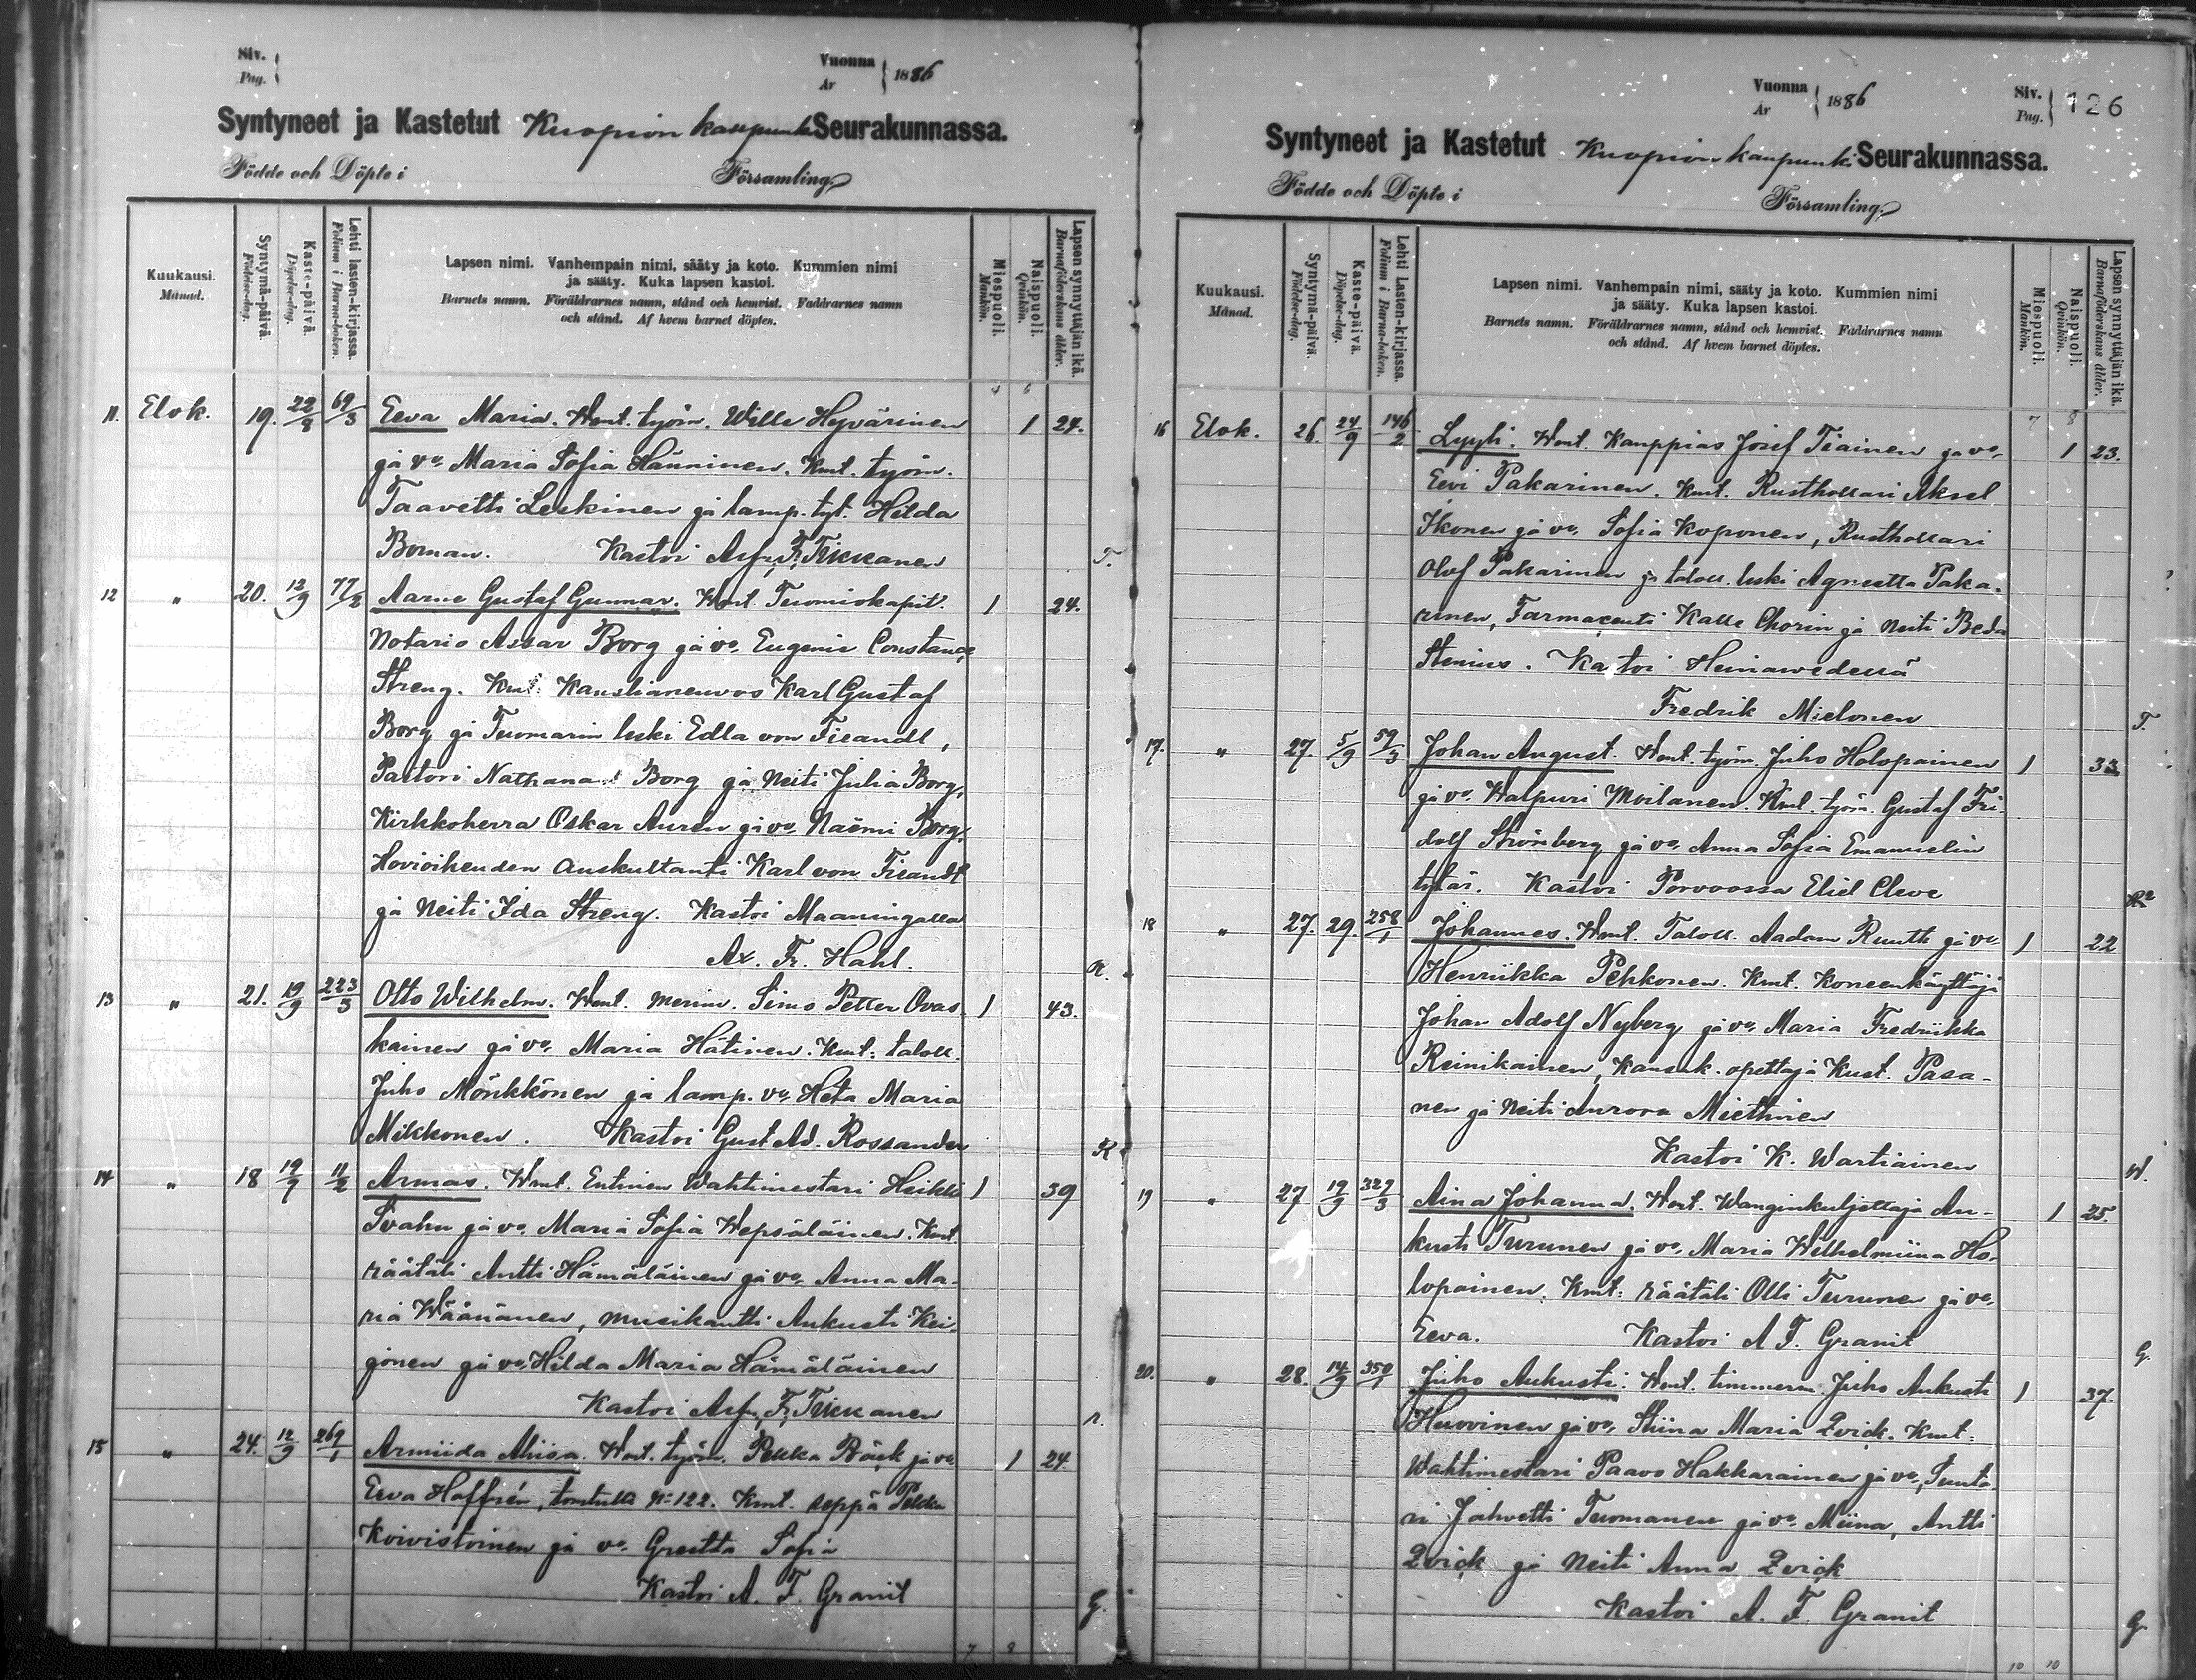 Siv.
Pag.
Vuonna
År
1886
Syntyneet ja Kastetut Kuopion kaupunki Seurakunnassa.
Födde och Döpte i
Församling
Kuukausi.
Månad.
Syntymä-päivä.
Födelse-dag.
Kaste-päivä.
Döpelse-dag.
Lehti lasten-kirjassa.
Folium i Barna-boken.
Lapsen nimi. Vanhempain nimi, sääty ja koto. Kummien nimi
ja sääty. Kuka lapsen kastoi.
Barnets namn. Föräldrarnes namn, stånd och hemvist. Faddrarnes namn
och stånd. Af hvem barnet döptes.
Miespuoli.
Mankön.
Naispuoli.
Qvinkön.
Lapsen synnyttäjän ikä.
Barnaföderskans ålder.
11. Elok. 19. 22/8 69/3 Eeva Maria. Wmt. työm. Wille Hyvärinen 1 24.
ja vo. Maria Sofia Hänninen. Kmt. työm.
Taavetti Leskinen ja lamp. tyt. Hilda
Boman. Kastoi Asfr. Fr. Tikkanen T.
12 " 20. 12/9 77/2 Aarne Gustaf Gunnar. Wmt. Tuomiokapit. 1 24.
Notario Assar Borg ja vo. Eugenie Constance
Streng. Kmt. Kanslianeuvos Karl Gustaf
Borg ja Tuomarin leski Edla von Fieandt,
Pastori Nathanael Borg ja Neiti Julia Borg,
Kirkkoherra Oskar Auren ja vo. Naëmi Borg,
Hovioikeuden Auskultanti Karl von Fieandt
ja Neiti Ida Streng. Kastoi Maaningalla
Ax. Fr. Hahl. R.
13 " 21. 19/9 223/3 Otto Wilhelm. Wmt. merim. Simo Petter Ovas- 1 43.
kainen ja vo. Maria Hätinen. Kmt. taloll.
Juho Mönkkönen ja lamp. vo. Heta Maria
Mikkonen. Kastoi Gust. Ad. Rossander R
14 " 18 19/9 11/2 Armas. Wmt. Entinen Wahtimestari Heikki 1 39
Svahn ja vo. Maria Sofia Wepsäläinen. Kmt.
räätäli Antti Hämäläinen ja vo. Anna Ma-
ria Wäänänen, musikantti Aukusti Kei-
jonen ja vo. Hilda Maria Hämäläinen
Kastoi Asfr. Fr. Tikkanen
15 " 24. 12/9 269/1 Armiida Miisa. Wmt. työm. Pekka Bäck ja vo. 1 24
Eeva Hoffrén, tontilla No 122. Kmt. seppä Pekka
Koivistoinen ja vo. Greetta Sofia
Kastoi A. F. Granit G.
Vuonna
År
1886
Siv.
Pag.
126
Syntyneet ja Kastetut Kuopion kaupunki Seurakunnassa.
Födde och Döpte i
Församling
Kuukausi.
Månad.
Syntymä-päivä.
Födelse-dag.
Kaste-päivä.
Döpelse-dag.
Lehti Lasten-kirjassa.
Folium i Barna-boken.
Lapsen nimi. Vanhempain nimi, sääty ja koto. Kummien nimi
ja sääty. Kuka lapsen kastoi.
Barnets namn. Föräldrarnes namn, stånd och hemvist. Faddrarnes namn
och stånd. Af hvem barnet döptes.
Miespuoli.
Mankön.
Naispuoli.
Qvinkön.
Lapsen synnyttäjän ikä.
Barnaföderskans ålder.
16 Elok. 26. 24/9 146/2 Lyyli. Wmt. Kauppias Josef Tiainen ja vo. 1 23.
Eevi Pakarinen. Kmt. Rusthollari Aksel
Ikonen ja vo. Sofia Koponen, Rusthollari
Olof Pakarinen ja taloll. leski Agneetta Paka-
rinen, Farmaseuti Kalle Chorin ja Neiti Beda
Stenius. Kastoi Heinäwedellä
Fredrik Mielonen T.
17. " 27. 5/9 59/3 Johan August. Wmt. työm. Juho Holopainen 1 33
ja vo. Walpuri Moilanen. Kmt. työm. Gustaf Fri-
dolf Strömberg ja vo. Anna Sofia Emanuelin
tytär. Kastoi Porvoossa Eliel Cleve
18 " 27. 29. 258/1 Johannes. Wmt. Taloll. Aadam Ruuth ja vo. 1 22
Henriikka Pehkonen. Kmt. Koneenkäyttäjä
Johan Adolf Nyberg ja vo. Maria Fredriikka
Reinikainen, Kansak. opettaja Kust. Pasa-
nen ja Neiti Aurora Miettinen
Kastoi K. Wartiainen W.
19 " 27 19/9 329/3 Aina Johanna. Wmt. Wanginkuljettaja Au- 1 25.
kusti Turunen ja vo. Maria Wilhelmiina Ho-
lopainen. Kmt. räätäli Olli Turunen ja vo.
Eeva. Kastoi A F. Granit G.
20. " 28. 14/9 359/1 Juho Aukusti. Wmt. timmerm. Juho Aukusti 1 37.
Huovinen ja vo. Stiina Maria Qvick. Kmt.
Wahtimestari Paavo Hakkarainen ja vo., Sunta-
ri Jahvetti Tuomanen ja vo. Miina, Antti
Qvick ja Neiti Anna Qvick
Kastoi A. F. Granit G.